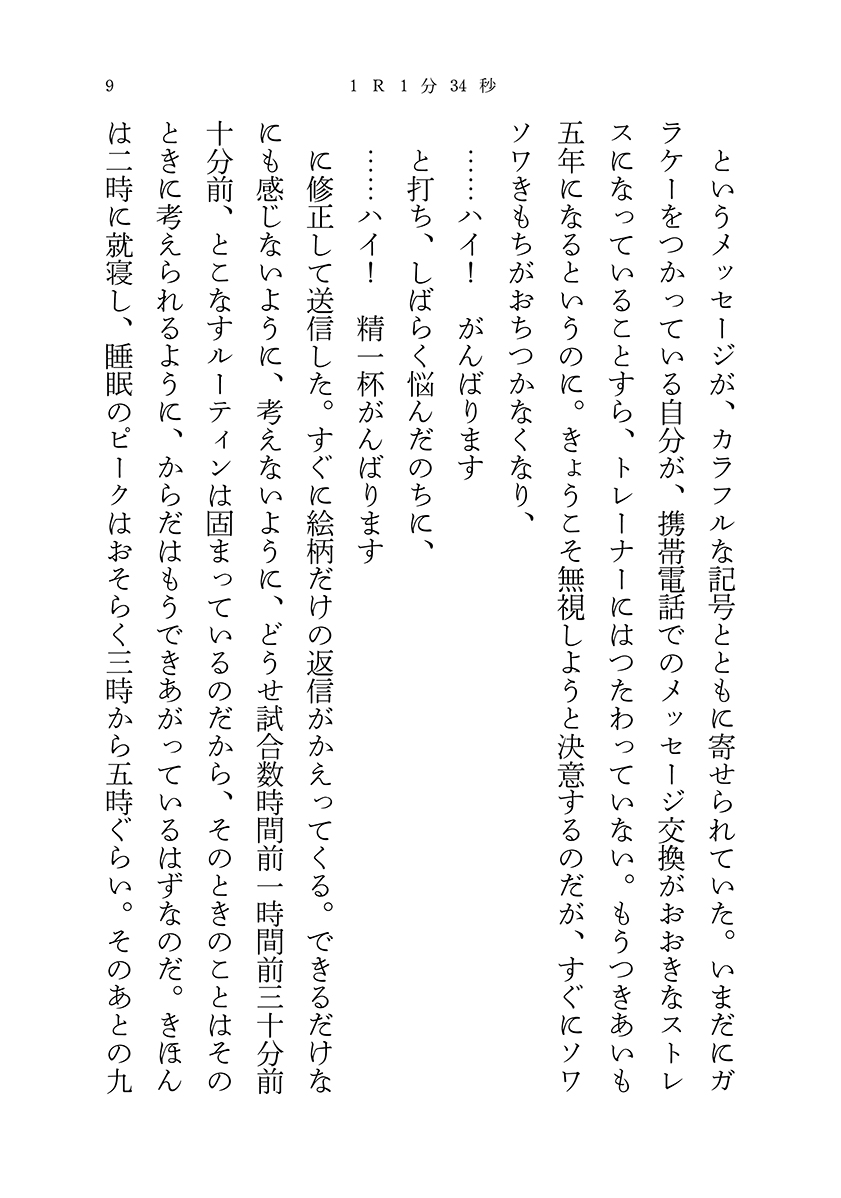 9
1R1分34秒
というメッセージが、カラフルな記号とともに寄せられていた。いまだにガ
ラケーをつかっている自分が、携帯電話でのメッセージ交換がおおきなストレ
スになっていることすら、トレーナーにはつたわっていない。もうつきあいも
五年になるというのに。きょうこそ無視しようと決意するのだが、すぐにソワ
ソワきもちがおちつかなくなり、
……ハイ！　がんばります
と打ち、しばらく悩んだのちに、
……ハイ！　精一杯がんばります
に修正して送信した。すぐに絵柄だけの返信がかえってくる。できるだけな
にも感じないように、考えないように、どうせ試合数時間前一時間前三十分前
十分前、とこなすルーティンは固まっているのだから、そのときのことはその
ときに考えられるように、からだはもうできあがっているはずなのだ。きほん
は二時に就寝し、睡眠のピークはおそらく三時から五時ぐらい。そのあとの九